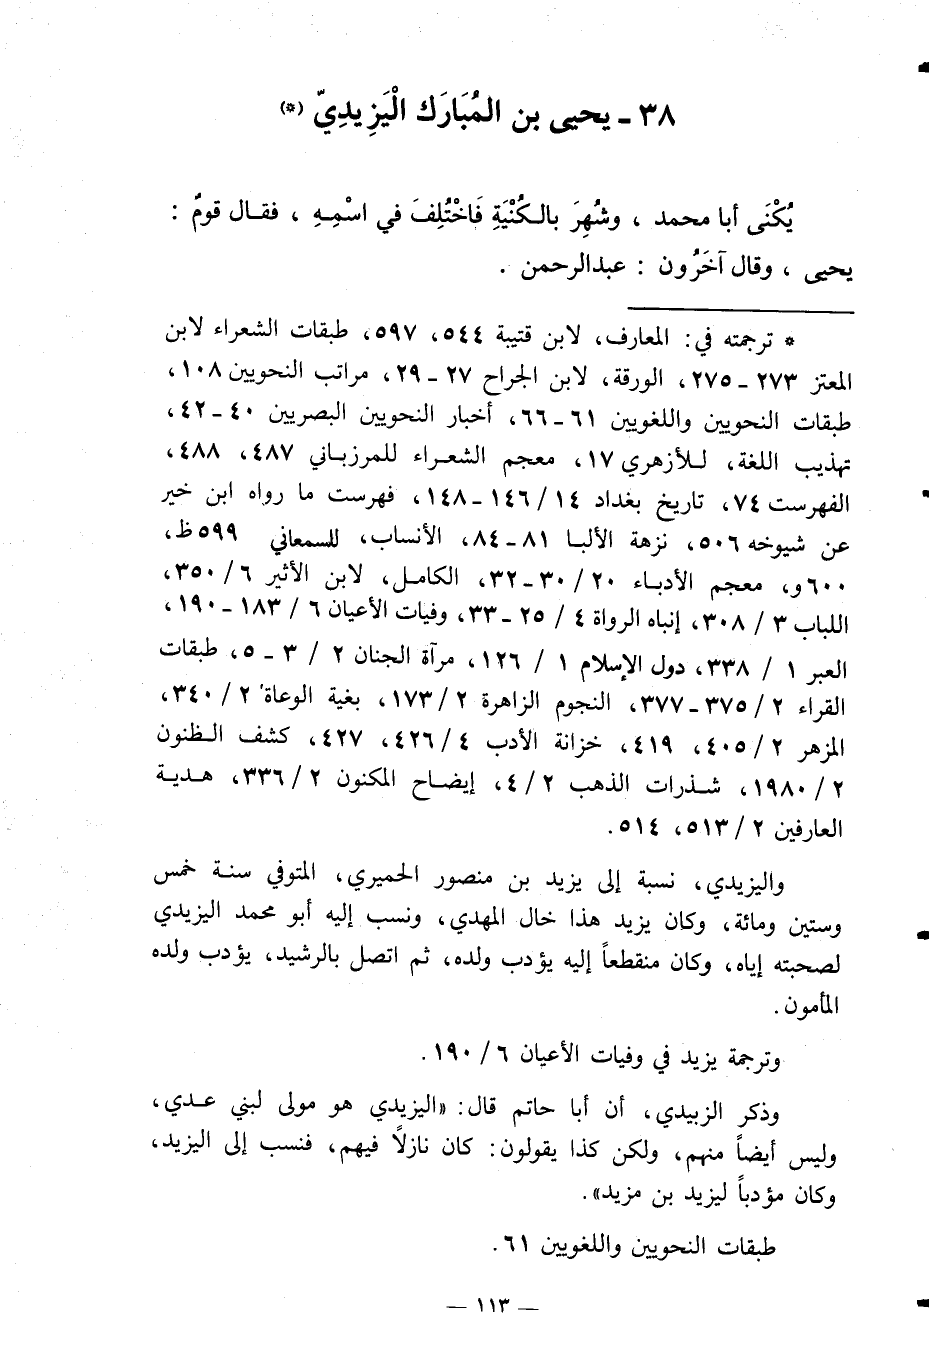 ٣٨ ـ يحيى بن المُبَارَك الْيَزِيدِيّ (*)
يُكْنَى أبا محمد ، وشُهِرَ بالكُنْيَةِ فَاخْتُلِفَ في اسْمِهِ ، فقال قومٌ :
يحيى ، وقال آخَرُون : عبدالرحمن .
* ترجمته في: المعارف، لابن قتيبة ٥٤٤، ٥٩٧، طبقات الشعراء لابن
المعتز ٢٧٣ ـ ٢٧٥، الورقة، لابن الجراح ٢٧ ـ ٢٩، مراتب النحويين ١٠٨،
طبقات النحويين واللغويين ٦١ ـ ٦٦، أخبار النحويين البصريين ٤٠ ـ ٤٢،
تهذيب اللغة، للأزهري ١٧، معجم الشعراء للمرزباني ٤٨٧، ٤٨٨،
الفهرست ٧٤، تاريخ بغداد ١٤ /١٤٦ ـ ١٤٨، فهرست ما رواه ابن خير
عن شيوخه ٥٠٦، نزهة الألبا ٨١ ـ ٨٤، الأنساب، للسمعاني ٥٩٩ظ،
٦٠٠و، معجم الأدباء ٢٠ /٣٠ ـ ٣٢، الكامل، لابن الأثير ٦ /٣٥٠،
اللباب ٣ / ٣٠٨، إنباه الرواة ٤ / ٢٥ ـ ٣٣، وفيات الأعيان ٦ / ١٨٣ ـ ١٩٠،
العبر ١ / ٣٣٨، دول الإسلام ١ / ١٢٦، مرآة الجنان ٢ / ٣ ـ ٥، طبقات
القراء ٢ /٣٧٥ ـ ٣٧٧، النجوم الزاهرة ٢ /١٧٣، بغية الوعاة ٢ /٣٤٠،
المزهر ٢ /٤٠٥، ٤١٩، خزانة الأدب ٤ /٤٢٦، ٤٢٧، كشف الظنون
٢ /١٩٨٠، شذرات الذهب ٢ /٤، إيضاح المكنون ٢ /٣٣٦، هدية
العارفين ٢ /٥١٣، ٥١٤.
واليزيدي، نسبة إلى يزيد بن منصور الحميري، المتوفي سنة خمس
وستين ومائة، وكان يزيد هذا خال المهدي، ونسب إليه أبو محمد اليزيدي
لصحبته إياه، وكان منقطعاً إليه يؤدب ولده، ثم اتصل بالرشيد، يؤدب ولده
المأمون.
وترجمة يزيد في وفيات الأعيان ٦ /١٩٠.
وذكر الزبيدي، أن أبا حاتم قال: «اليزيدي هو مولى لبني عدي،
وليس أيضاً منهم، ولكن كذا يقولون: كان نازلاً فيهم، فنسب إلى اليزيد،
وكان مؤدباً ليزيد بن مزيد».
طبقات النحويين واللغويين ٦١.
— ١١٣ —